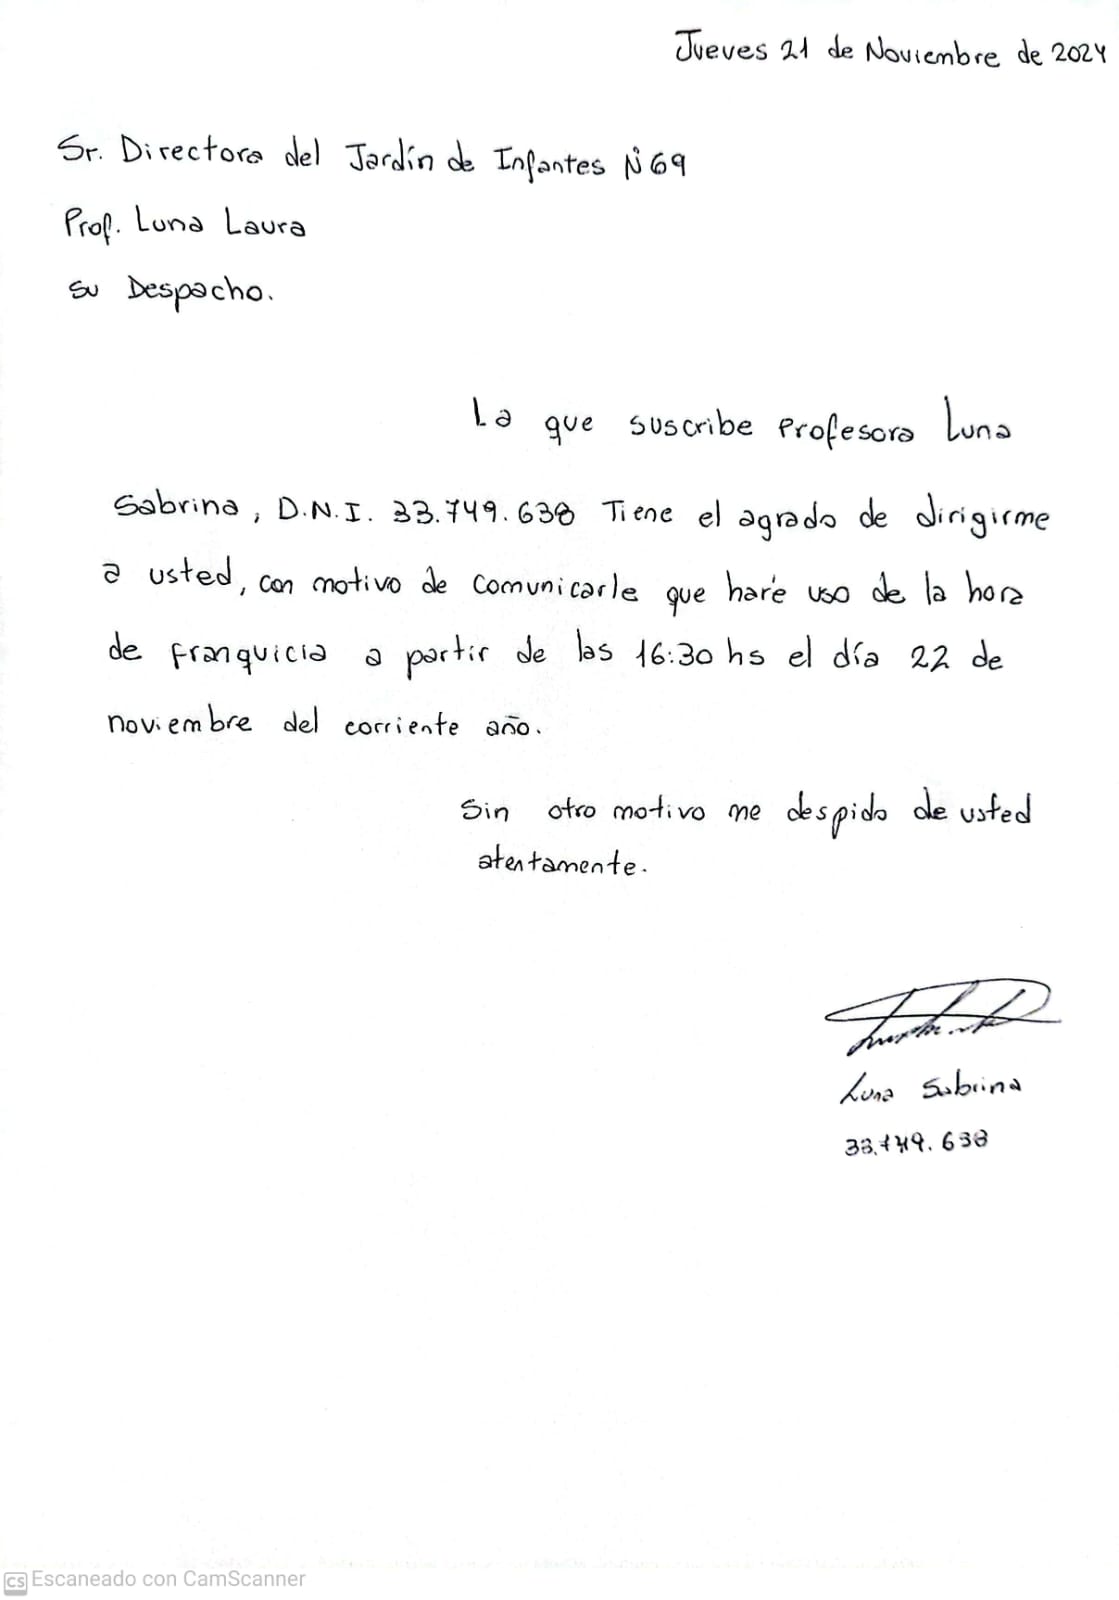 Jueves 21 de Noviembre de 2024
Sr. Directora del Jardín de Infantes N° 69
Prof. Luna Laura
Su Despacho.
La que suscribe Profesora Luna
Sabrina, D.N.I. 33.749.638 Tiene el agrado de dirigirme
a usted, con motivo de comunicarle que haré uso de la hora
de franquicia a partir de las 16:30 hs el día 22 de
noviembre del corriente año.
Sin otro motivo me despido de usted
atentamente.
Luna Sabrina
33.749.638
CS Escaneado con CamScanner